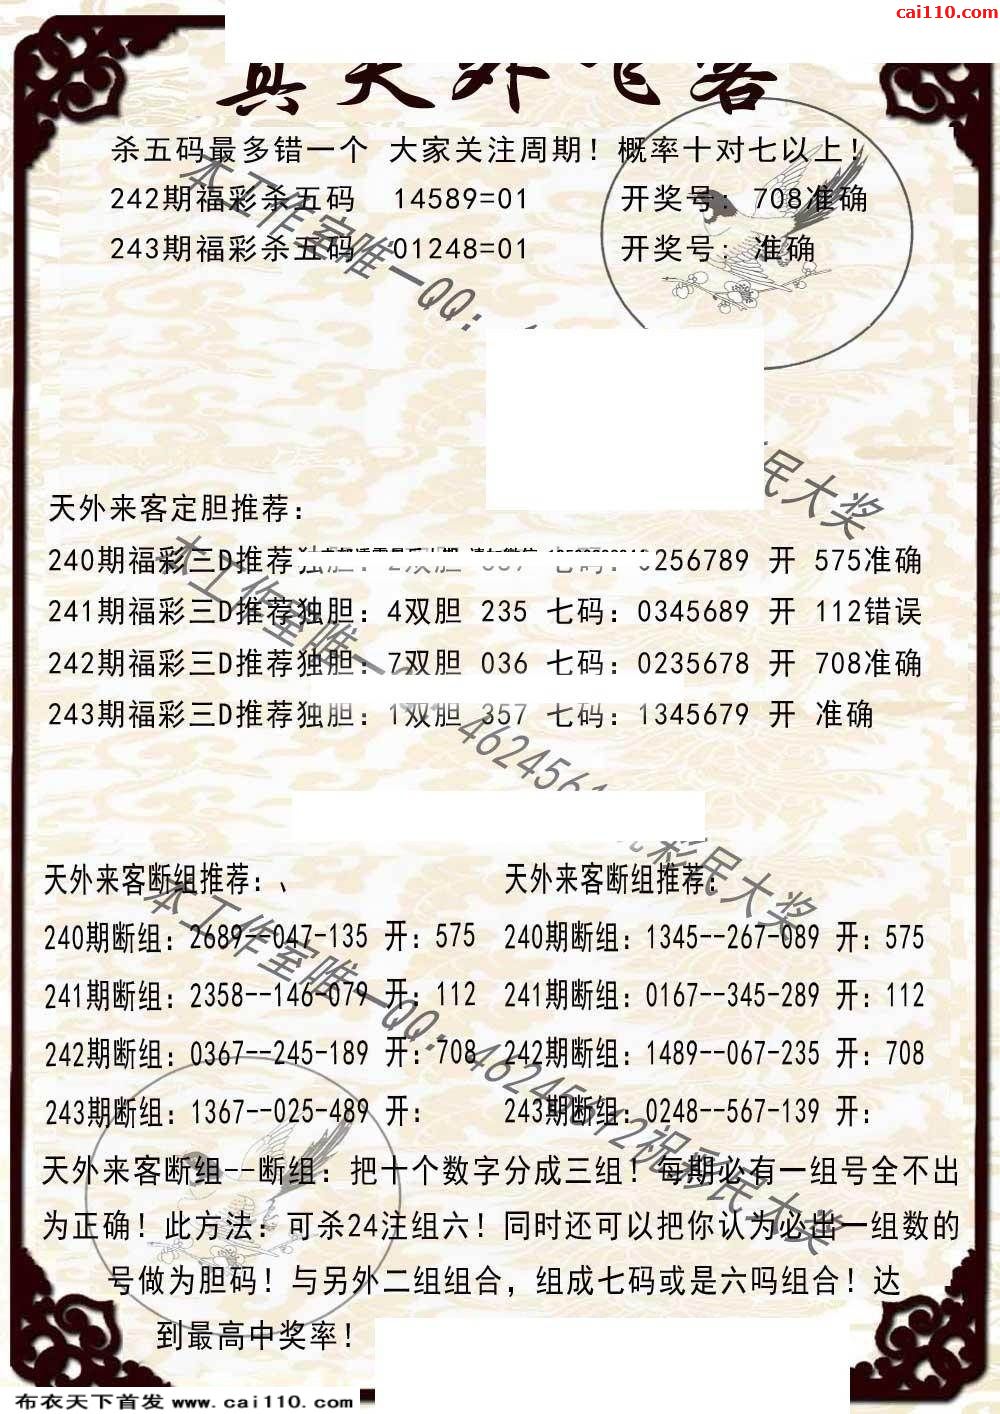 cai110.com
真天外飞客
杀五码最多错一个 大家关注周期！概率十对七以上！
242期福彩杀五码 14589=01 开奖号：708准确
243期福彩杀五码 01248=01 开奖号：准确
本工作室唯一QQ：
民大奖
天外来客定胆推荐：
240期福彩三D推荐独胆：2双胆 七码：0256789 开 575准确
241期福彩三D推荐独胆：4双胆 235 七码：0345689 开 112错误
242期福彩三D推荐独胆：7双胆 036 七码：0235678 开 708准确
243期福彩三D推荐独胆：1双胆 357 七码：1345679 开 准确
本工作室唯一
彩民大奖
天外来客断组推荐：、 天外来客断组推荐：
240期断组：2689--047-135 开：575 240期断组：1345--267-089 开：575
241期断组：2358--146-079 开：112 241期断组：0167--345-289 开：112
242期断组：0367--245-189 开：708 242期断组：1489--067-235 开：708
243期断组：1367--025-489 开： 243期断组：0248--567-139 开：
本工作室唯一QQ：46245612祝彩民大奖
天外来客断组--断组：把十个数字分成三组！每期必有一组号全不出
为正确！此方法：可杀24注组六！同时还可以把你认为必出一组数的
号做为胆码！与另外二组组合，组成七码或是六吗组合！达
到最高中奖率！
布衣天下首发 www.cai110.com